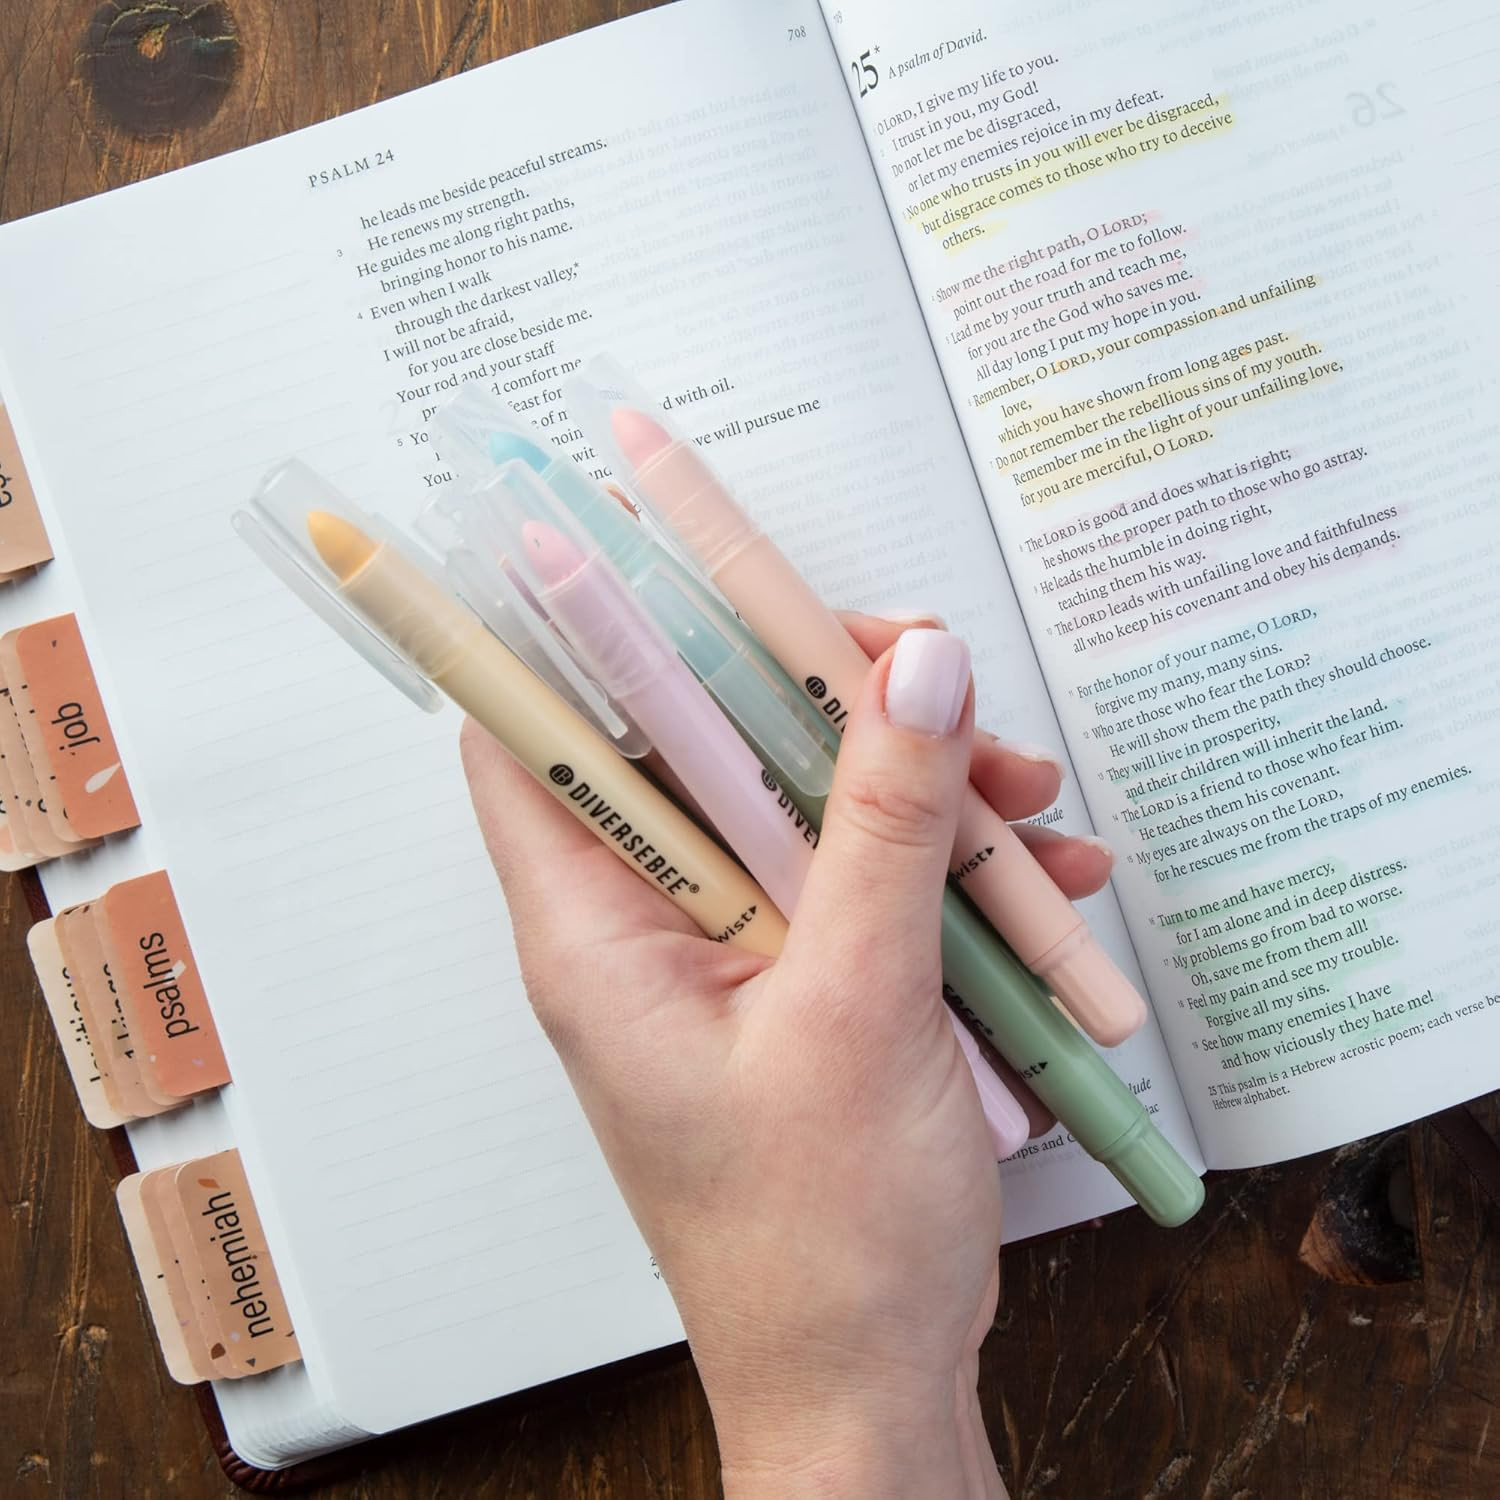 PSALM 24
708
he leads me beside peaceful streams.
3 He renews my strength.
He guides me along right paths,
bringing honor to his name.
4 Even when I walk
through the darkest valley,*
I will not be afraid,
for you are close beside me.
Your rod and your staff
d comfort me
feast for
of m
5
d with oil.
ve will pursue me
You
25*
A psalm of David.
O LORD, I give my life to you.
I trust in you, my God!
Do not let me be disgraced,
or let my enemies rejoice in my defeat.
No one who trusts in you will ever be disgraced,
but disgrace comes to those who try to deceive
others.
Show me the right path, O LORD;
point out the road for me to follow.
Lead me by your truth and teach me,
for you are the God who saves me.
All day long I put my hope in you.
Remember, O LORD, your compassion and unfailing
love,
which you have shown from long ages past.
7 Do not remember the rebellious sins of my youth.
Remember me in the light of your unfailing love,
for you are merciful, O LORD.
8 The LORD is good and does what is right;
he shows the proper path to those who go astray.
9 He leads the humble in doing right,
teaching them his way.
10 The LORD leads with unfailing love and faithfulness
all who keep his covenant and obey his demands.
11 For the honor of your name, O LORD,
forgive my many, many sins.
12 Who are those who fear the LORD?
He will show them the path they should choose.
13 They will live in prosperity,
and their children will inherit the land.
14 The LORD is a friend to those who fear him.
He teaches them his covenant.
15 My eyes are always on the LORD,
for he rescues me from the traps of my enemies.
16 Turn to me and have mercy,
for I am alone and in deep distress.
17 My problems go from bad to worse.
Oh, save me from them all!
18 Feel my pain and see my trouble.
Forgive all my sins.
19 See how many enemies I have
and how viciously they hate me!
25 This psalm is a Hebrew acrostic poem; each verse be
Hebrew alphabet.
26
job
psalms
nehemiah
B DIVERSEBEE®
wist
B DIVER
B DIV
wist
EBEE®
ist
terlude
lude